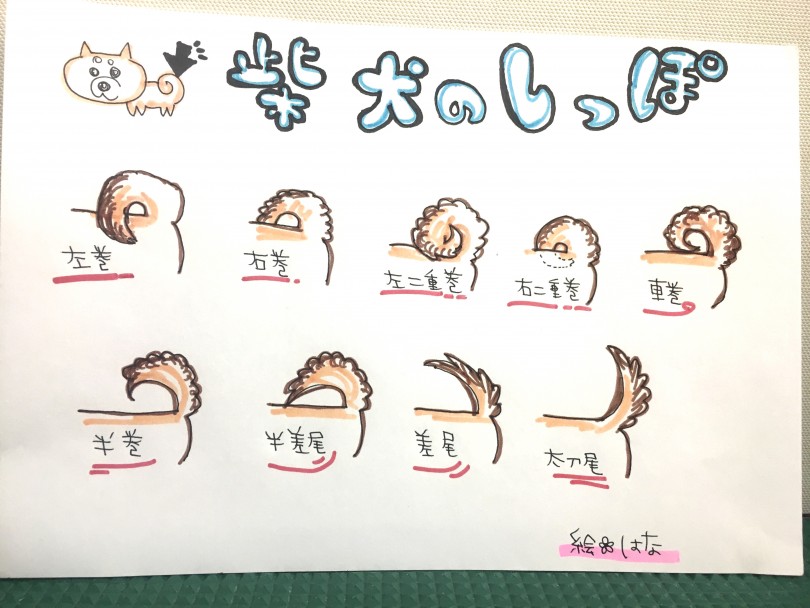 柴犬のしっぽ
左巻 右巻 左二重巻 右二重巻 車巻
半巻 半差尾 差尾 太刀尾
絵 はな